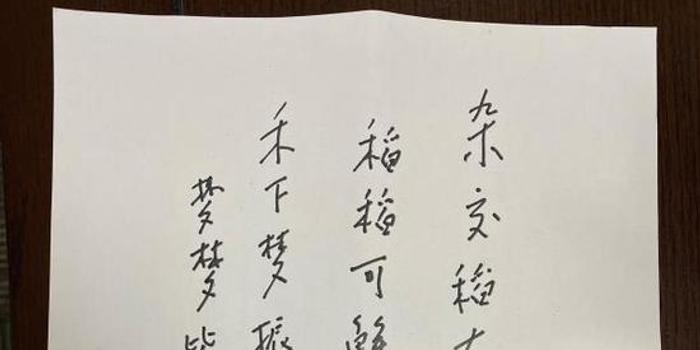 杂交稻
稻稻可
禾下梦振
梦梦